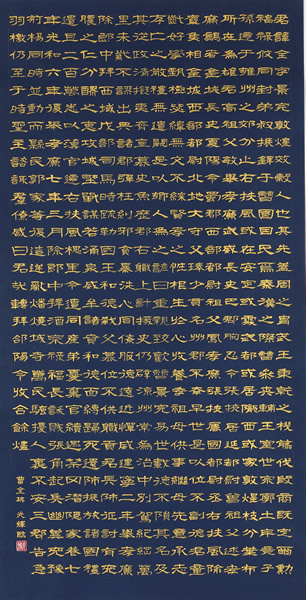 君諱全字景完敦煌效穀人也其先蓋周之胄武王秉乾之機翦伐殷商既定爾勳
福祿攸同封弟叔振鐸于曹國因氏焉秦漢之際曹參夾輔王室世宗廓土斥竟子
孫遷于雍州之郊分止右扶風或在安定或處武都或居隴西或家敦煌枝分葉布
所在為雄君高祖父敏舉孝廉武威長史巴郡朐忍令張掖居延都尉曾祖父述孝廉謁
者金城長史夏陽令蜀郡西部都尉祖父鳳孝廉張掖屬國都尉丞
右扶風隃麋侯相金城西部都尉北地太守父琫少貫名州郡不幸早世是以位不副德君童
齔好學甄極毖緯無文不綜賢孝之性根生於心收養季祖母供事繼母先意承志
存亡之敬禮無遺闕是以鄉人為之諺曰重親致歡曹景完易世載德不隕其名及
其從政清擬夷齊直慕史魚歷郡右職上計掾史仍辟涼州常為治中別駕紀綱萬
里朱紫不謬出典諸郡彈枉糾邪貪暴洗心同僚服德遠近憚威建寧二年舉孝廉
除郎中拜西域戊部司馬時疏勒國王和德弒父篡位不供職貢君興師征討有吮
膿之仁分醪之惠攻城野戰謀若涌泉威牟諸賁和德面縛歸死還師振旅諸國禮遺
且二百萬悉以簿官遷右扶風槐里令遭同產弟憂棄官續遇禁冈潛隱家巷七
年光和六年復舉孝廉七年三月除郎中拜酒泉祿福長訞賊張角起兵幽冀兗豫荊
楊同時並動而縣民郭家等復造逆亂燔燒城寺萬民騷擾人裹不安三郡告急
羽檄仍至于時聖主諮諏群僚咸曰君哉轉拜郃陽令收合餘燼
曹全碑 光輝臨